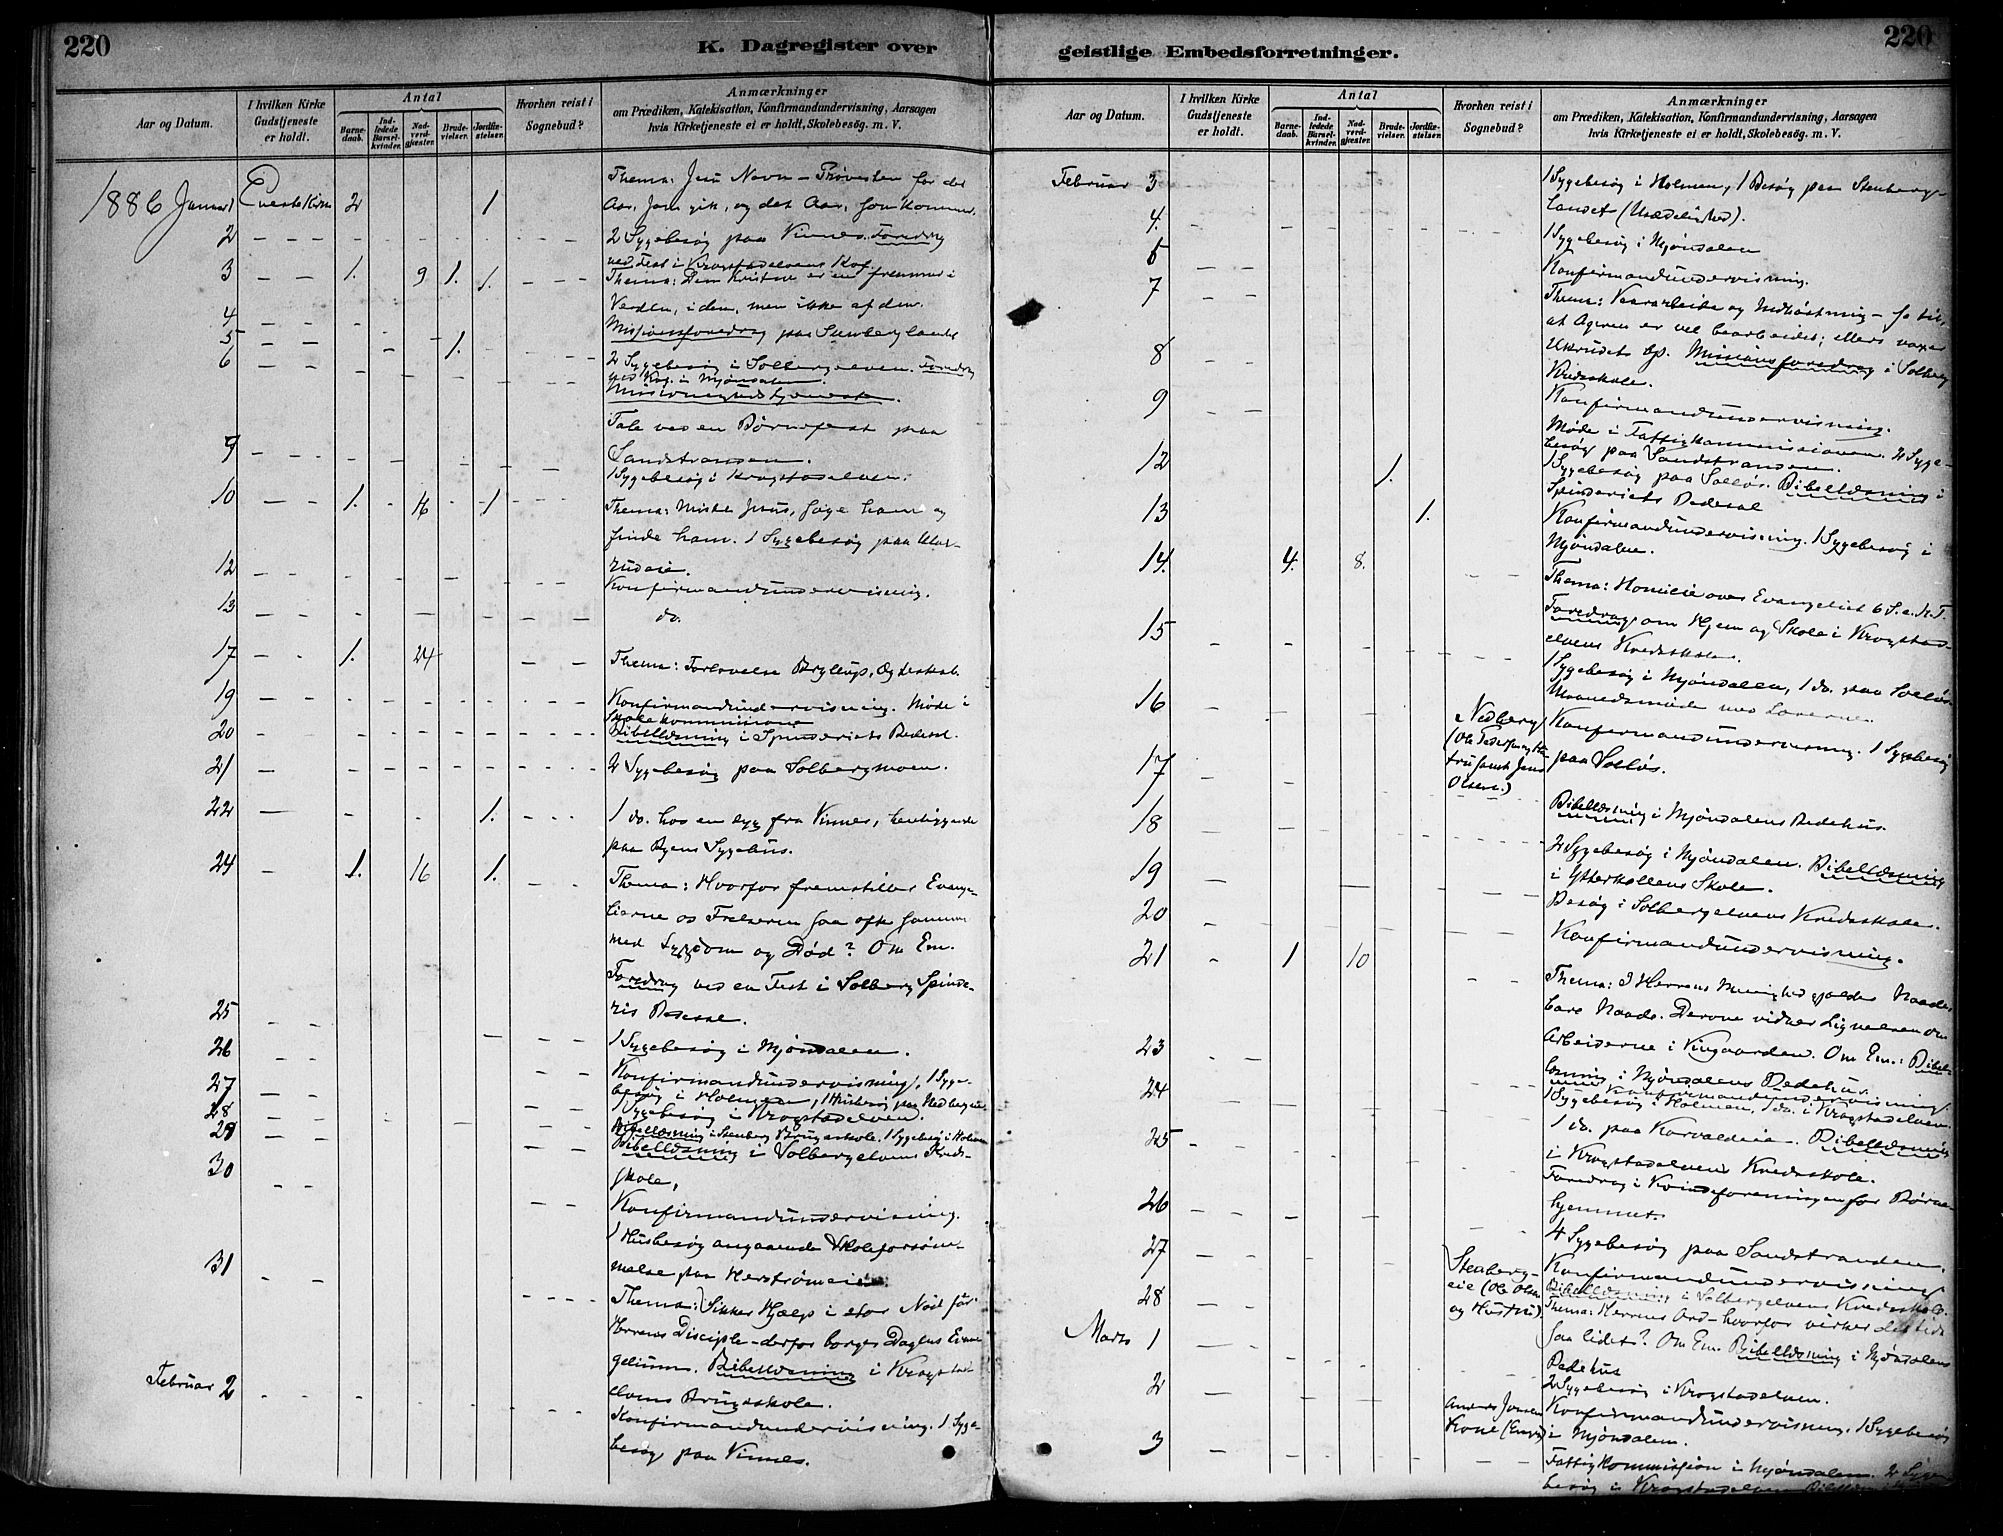 220
K. Dagregister over
Aar og Datum.
I hvilken Kirke
Gudstjeneste
er holdt.
Antal
Barne-
daab.
Ind-
ledede
Barsel-
kvinder.
Nad-
verd-
gjæster.
Brude-
vielser.
Jordfæ-
stelser.
Hvorhen reist i
Sognebud?
Anmærkninger
om Prædiken, Katekisation, Konfirmandundervisning, Aarsagen
hvis Kirketjeneste ei er holdt, Skolebesög. m. V.
Thema: Jesu Navn – Prøvesten for det
1886 Januar 1 2 1 Aar, som gik, og det Aar, som kommer.
2 2 Sygebesøg paa Vinnes. Foredrag
ved Fest i Krogstadelvens
3 1. 9 1. 1. Thema: De Kristne er en fremmed i
Verden, i dem, men ikke af den.
4 Missionsforedrag paa Stenberglandet
5 1.
6 2 Sygebesøg i Solbergelven. Foredrag
i Mjøndalen.
Missionsgudstjeneste.
Tale ved en Børnefest paa
9 Sandstranden.
1 Sygebesøg i Krogstadelven.
10 1. 16 1 Thema: Miste Jesus, søge ham og
finde ham. 1 Sygebesøg paa
12 Konfirmandundervisning.
13 do.
17 1. 24 Thema: Forlovelse Bryllup, Ægteskab.
19 Konfirmandundervisning. Møde i
Skolekommissionen
20 Bibellæsning i Spinderiets Bedesal.
21 2 Sygebesøg paa Solbergmoen.
22 1. 1 do. hos en syg fra Vinnes, henliggende
paa Byens Sygehus.
24 1. 16 1. Thema: Hvorfor fremstiller Evange-
lierne os Frelseren saa ofte sammen
med Sygdom og Død? Om Em.
Foredrag ved en Fest i Solberg Spinde-
ris Bedesal.
25 1 Sygebesøg i Mjøndalen.
26 Konfirmandundervisning, 1 Syge-
27 besøg i Holmen, 1 Husbesøg paa Nedbergeie
28 1 Sygebesøg i Krogstadelven.
29 Bibellæsning i Stenberg Brugsskole. 1 Sygebesøg i Holmen
Bibellæsning i Solbergelvens Kreds-
30 skole,
Konfirmandundervisning.
1 Husbesøg angaaende Skoleforsøm-
31 melse paa Herstrømeie
Thema: Sikker Hjælp i stor Nød for
Herrens Disciple – derfor borger Dagens Evan-
gelium. Bibellæsning i Krogstad-
Februar 2 elvens Brugsskole.
Konfirmandundervisning. 1 Syge-
besøg paa Vinnes.
220
geistlige Embedsforretninger.
Aar og Datum.
I hvilken Kirke
Gudstjeneste
er holdt.
Antal
Barne-
daab.
Ind-
ledede
Barsel-
kvinder.
Nad-
verd-
gjæster.
Brude-
vielser.
Jordfæ-
stelser.
Hvorhen reist i
Sognebud?
Anmærkninger
om Prædiken, Katekisation, Konfirmandundervisning, Aarsagen
hvis Kirketjeneste ei er holdt, Skolebesög. m. V.
Februar 3 1 Sygebesøg i Holmen, 1 Besøg paa Stenberg-
landet (Usædelighed).
4. 1 Sygebesøg i Mjøndalen
5 Konfirmandundervisning.
7 Thema: Vaararbeide og Indhøstning – se til,
at Ageren er vel bearbeidet; ellers voxer
8 Ukrudtet op. Missionsforedrag i Solberg
Kredsskole.
9 Konfirmandundervisning.
Møde i Fattigkommissionen. 2 Syge-
besøg paa Sandstranden.
12 1. 1 Sygebesøg paa Solløs. Bibellæsning i
Spinderiets Bedesal
13 1. Konfirmandundervisning. 1 Sygebesøg i
Mjøndalen.
14. 4. 8. Thema: Homilie over Evangeliet 6 S. e. H. 3 K.
15 Foredrag om Hjem og Skole i Krogstad-
elvens Kredsskole.
1 Sygebesøg i Mjøndalen, 1 do. paa Solløs
16 Maanedsmøde med Lærerne.
Nedberg
Konfirmandundervisning. 1 Sygebesøg
17 paa Solløs.
Olsen.)
18 Bibellæsning i Mjøndalens Bedehus.
19 2 Sygebesøg i Mjøndalen. Bibellæsning
i Ytterkollens Skole.
20 Besøg i Solbergelvens Kredsskole.
Konfirmandundervisning.
21 1 10 Thema: I Herrens Menighed gjælder Naade,
bare Naade. Derom vidner Lignelsen om
23 Arbeiderne i Vingaarden. Om Em.: Bibel-
læsning i Mjøndalens Bedehus.
24 Konfirmandundervisning.
1 Sygebesøg i Holmen, 1 do. i Krogstadelven.
25 1 do. paa Bibellæsning
i Krogstadelvens Kredsskole.
26 Foredrag i Kvindeforeningen for Børne-
hjemmet.
27 4 Sygebesøg paa Sandstranden.
Stenberg-
eie (Ole Olsen
og Hustru).
Konfirmandundervisning
28 Bibellæsning i Solbergelvens Kredsskole.
Thema: Herrens Ord – hvorfor virker det tidt
Marts 1 saa lidet? Om Em. Bibellæsning i Mjøndalens
Bedehus
2 2 Sygebesøg i Krogstadelven.
Anders Jensen
Kone
Konfirmandundervisning. 1 Sygebesøg
3 i Mjøndalen.
Fattigkommission i Mjøndalen. 2 Syge-
besøg i Krogstadelven